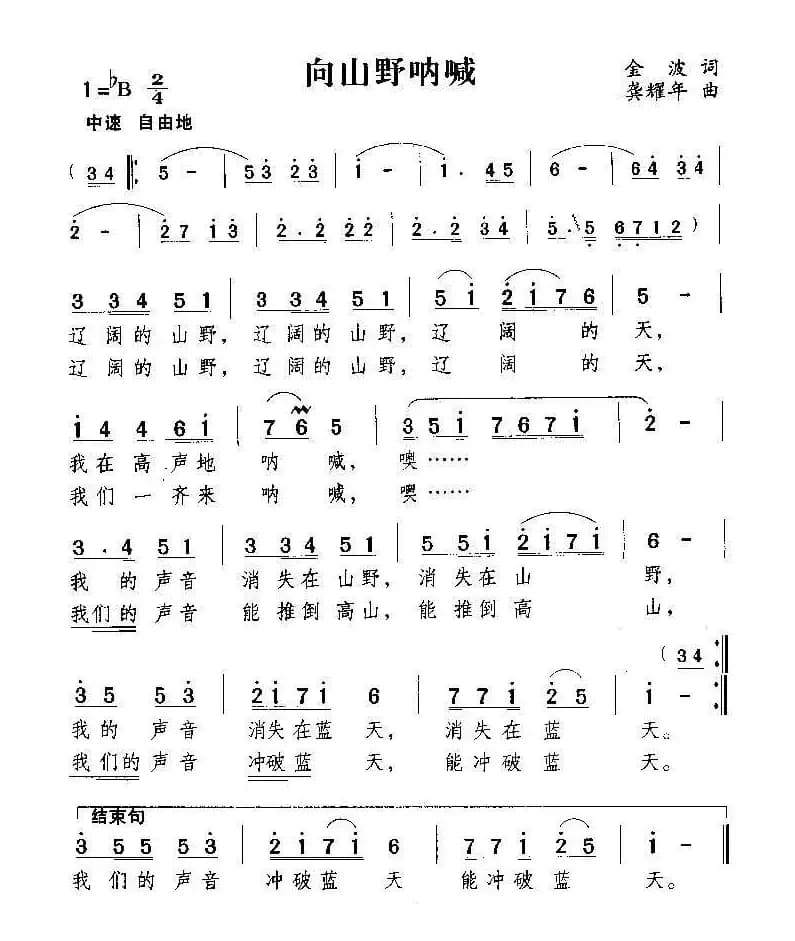 向山野呐喊
1=♭B 2/4
金波 词
龚耀年 曲
中速 自由地
(34 ‖: 5 - | 53 23 | 1 - | 1 . 45 | 6 - | 64 34 |
2 - | 27 13 | 2 . 22 | 2 . 2 34 | 5 . 5 6712 )
3 34 51 | 3 34 51 | 51 2176 | 5 - |
辽阔的山野，辽阔的山野，辽阔的天，
辽阔的山野，辽阔的山野，辽阔的天，
1 4 4 61 | 76 5 | 351 7671 | 2 - |
我在高声地呐喊，噢……
我们一齐来呐喊，噢……
3 . 4 51 | 3 34 51 | 5 51 2171 | 6 - |
我的声音消失在山野，消失在山野，
我们的声音能推倒高山，能推倒高山，
(34 :‖
35 53 | 2171 6 | 771 25 | 1 - :‖
我的声音消失在蓝天，消失在蓝天。
我们的声音冲破蓝天，能冲破蓝天。
结束句
3 55 53 | 2171 6 | 771 25 | 1 - ‖
我们的声音冲破蓝天能冲破蓝天。